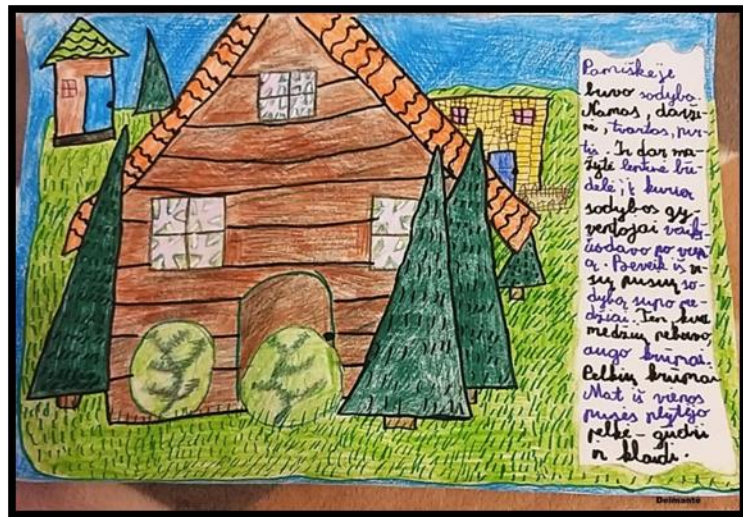 Pamiškėje
buvo sodyba.
Namas, darži-
nė, tvartas, pir-
tis. Ir dar ma-
žytė lentinė bū-
delė, į kurią
sodybos gy-
ventojai vaikš-
čiodavo po vieną
ą. Beveik iš vi-
sų pusių so-
dybą supo me-
džiai. Ten, kur
medžių nebuvo,
augo krūmai.
Pelkių krūmai.
Mat iš vienos
pusės plytėjo
pelkė - gūdi
ir klaidi.
Deimantė